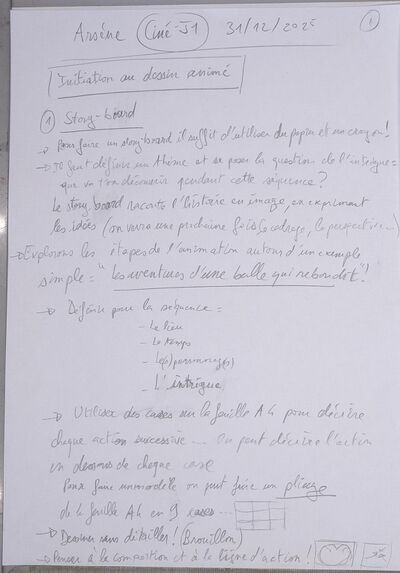 Arsène Ciné-J1 31/12/2025 1
Initiation au dessin animé
1 Story-board
→ Pour faire un story-board il suffit d'utiliser du papier et un crayon!
→ Il faut définir un thème et se poser la question de l'intrigue =
que va t'on découvrir pendant cette séquence?
Le story board raconte l'histoire en image en exprimant
les idées (on verra une prochaine fois le cadrage, la perspective...)
→ Explorons les étapes de l'animation autour d'un exemple
simple = "les aventures d'une balle qui rebondit"!
→ Définir pour la séquence =
- Le lieu
- Le temps
- Le(s) personnage(s)
- L'intrigue
→ Utiliser des cases sur la feuille A4 pour décrire
chaque action successive... On peut décrire l'action
en dessous de chaque case
Pour faire un modèle on peut faire un pliage
de la feuille A4 en 9 cases...
→ Dessiner sans détailler! (Brouillon)
→ Penser à la composition et à la ligne d'action!